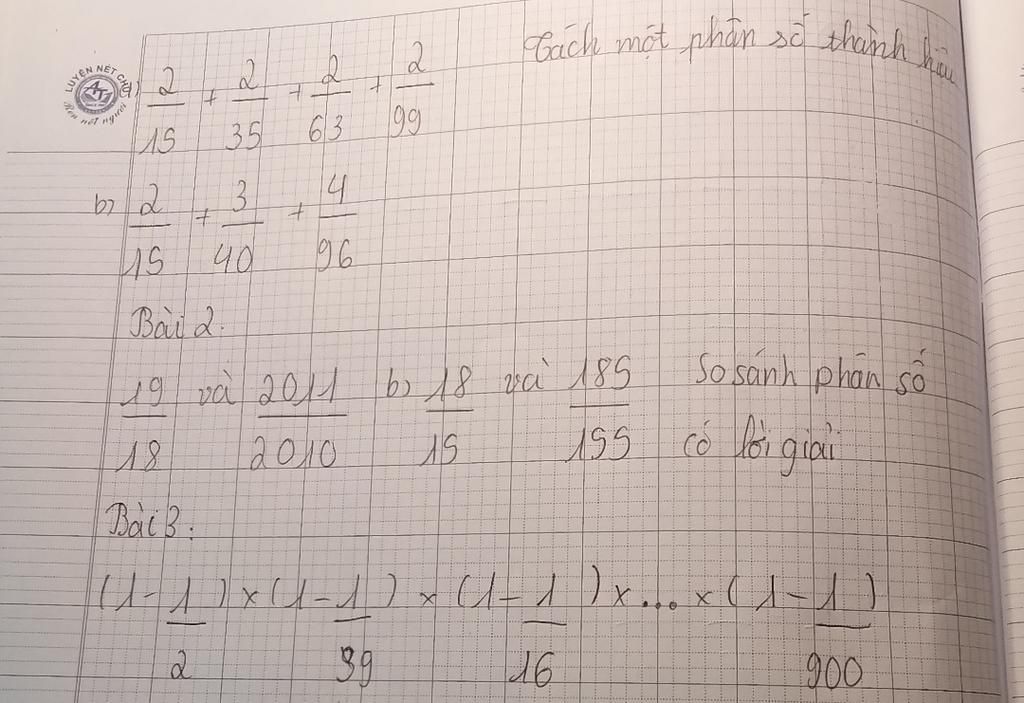 LUYỆN NÉT CHỮ
Rèn nết người
) 2/15 + 2/35 + 2/63 + 2/99 Tách một phân số thành hiệu
b) 2/15 + 3/40 + 4/96
Bài 2.
19/18 và 2011/2010 b) 18/15 và 185/155 So sánh phân số
có lời giải
Bài 3:
(1-1/2) x (1-1/39) x (1-1/16) x ... x (1-1/900)